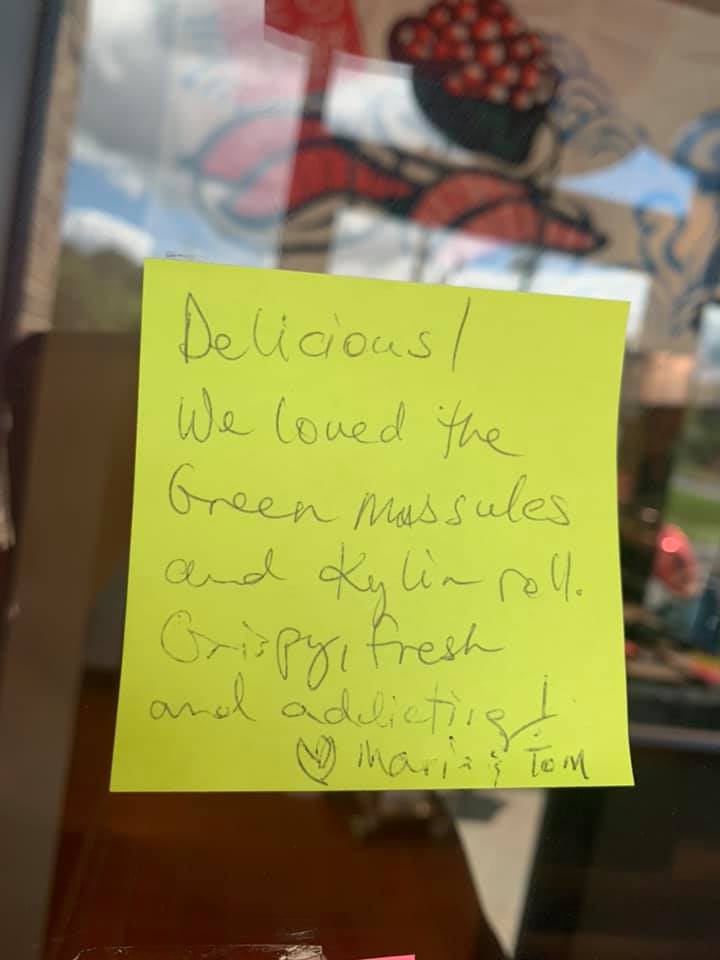 Delicious!
We loved the
Green Mussules
and Kylin roll.
Crispy, fresh
and addicting!
♡ Maria & Tom